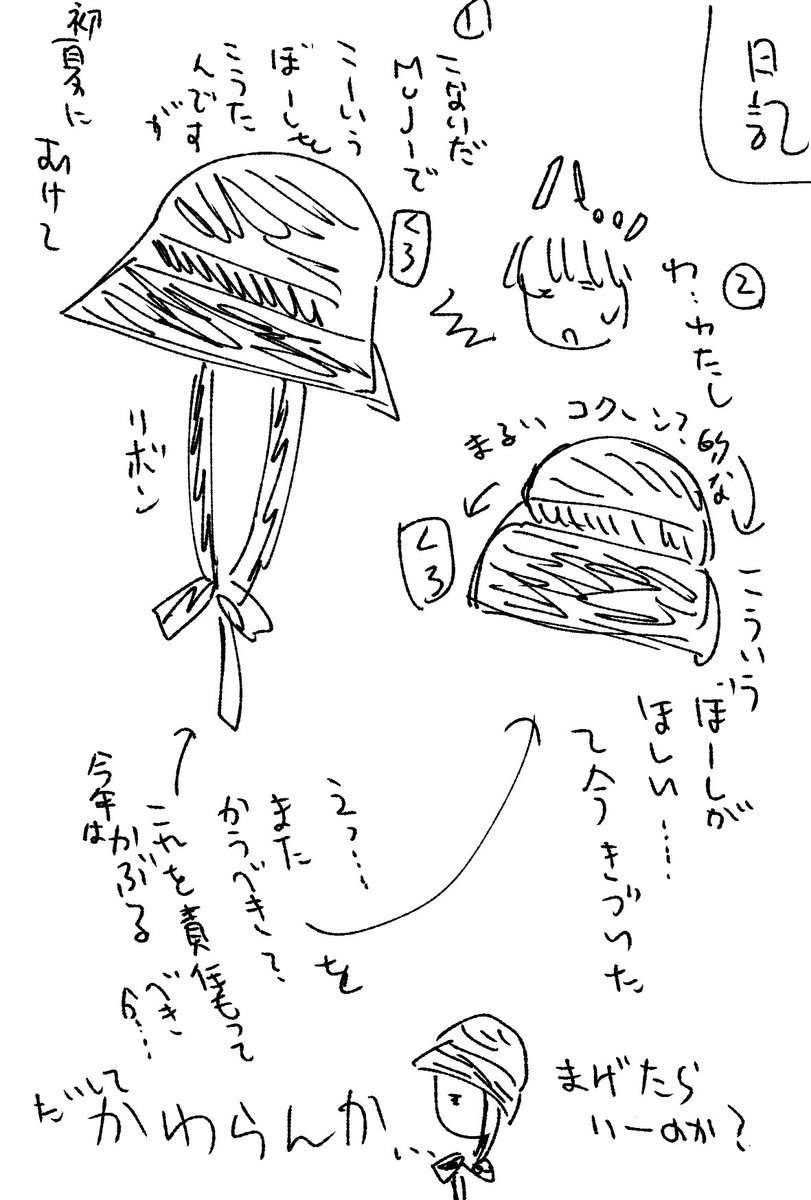 日記
①
こないだ
MUJIで
こーいう
ぼーしを
こうた
んです
が
初夏に
むけて
くろ
リボン
②
わ…わたし
コクーン?的な
まるい
くろ
こういう
ぼーしが
ほしい……
て今きづいた
えっ…
また
かうべき?
を
これを責任もって
かぶる
べき
か…
今年は
まげたら
いーのか?
だいして
かわらんか…